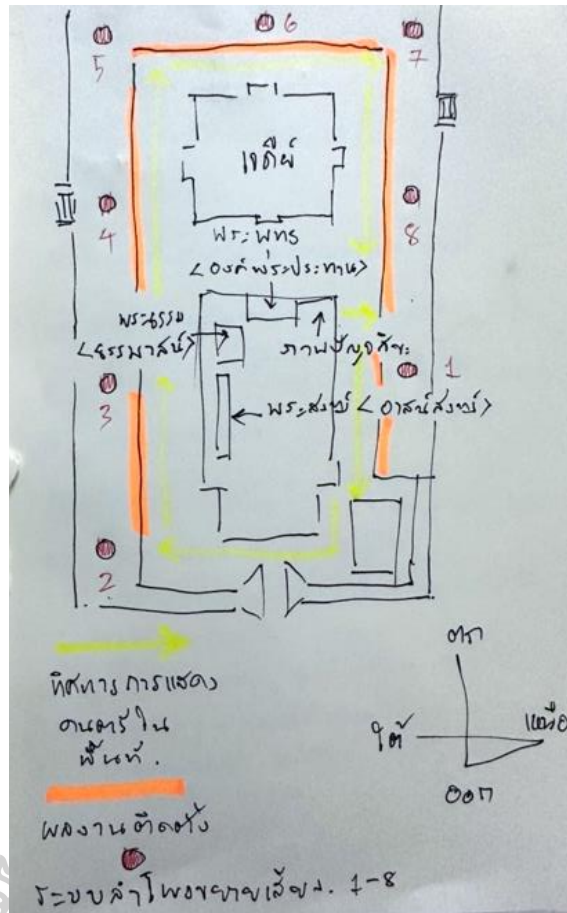 6
5
7
เจดีย์
4
8
พระพุทธ
<องค์พระประธาน>
พระธรรม
<ธรรมาสน์>
ภาพปัญจสิขะ
1
3
พระสงฆ์ <อาสน์สงฆ์>
2
ทิศทางการแสดง
ดนตรีใน
พื้นที่.
ผลงานติดตั้ง
ระบบลำโพงขยายเสียง. 1-8
ตก
ใต้
เหนือ
ออก